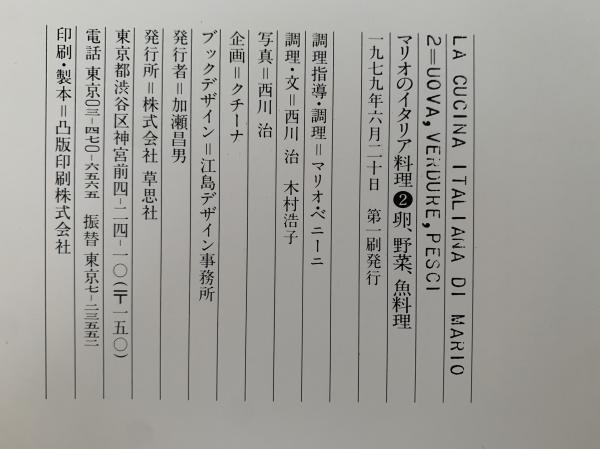 LA CUCINA ITALIANA DI MARIO
2=UOVA, VERDURE, PESCI
マリオのイタリア料理❷卵、野菜、魚料理
一九七九年六月二十日　第一刷発行
調理指導・調理＝マリオ・ベニーニ
調理・文＝西川 治　木村浩子
写真＝西川 治
企画＝クチーナ
ブックデザイン＝江島デザイン事務所
発行者＝加瀬昌男
発行所＝株式会社 草思社
東京都渋谷区神宮前四-二四-一〇（〒一五〇）
電話 東京〇三-四七〇-六五六五　振替 東京七-二三五五二
印刷・製本＝凸版印刷株式会社